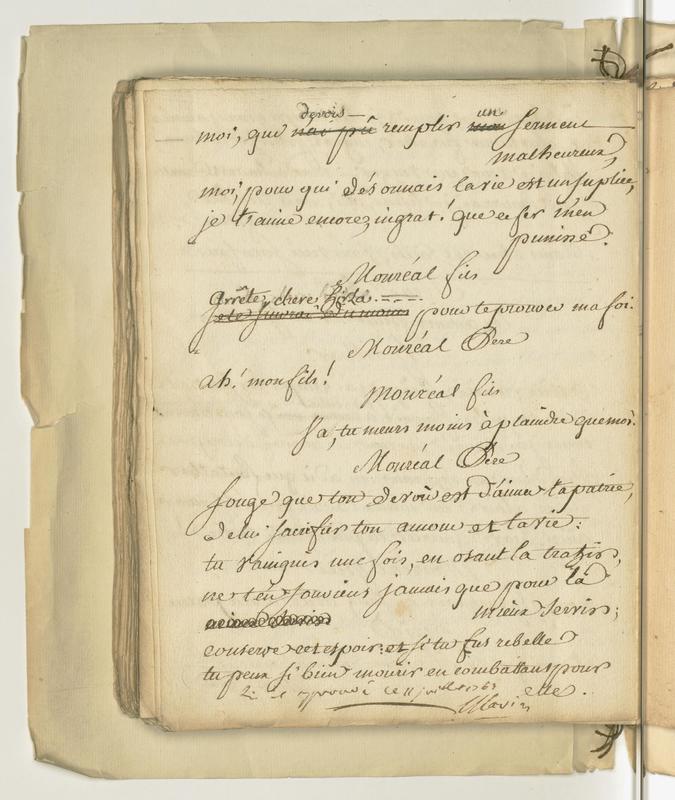 devois un
moi, que n'ai pû remplir mon serment
malheureux,
moi, pour qui désormais la vie est un suplice,
je t'aime encore, ingrat! que ce fer m'en
punisse.
Monréal fils
Arrête, chere Zirla
je te suivrai du moins pour te prouver ma foi.
Monréal Pere
ah! mon fils!
Monréal fils
Va, tu meurs moins à plaindre que moi.
Monréal Pere
songe que ton devoir est d'aimer ta patrie,
de lui sacrifier ton amour et ta vie:
tu vainquis une fois, en osant la trahir,
ne t'en souviens jamais que pour la
mieux servir;
conserve cet espoir, et si tu fus rebelle
tu peux si bien mourir en combattant pour
elle.
Lu et aprouvé ce 11 juillet 1763
Marin